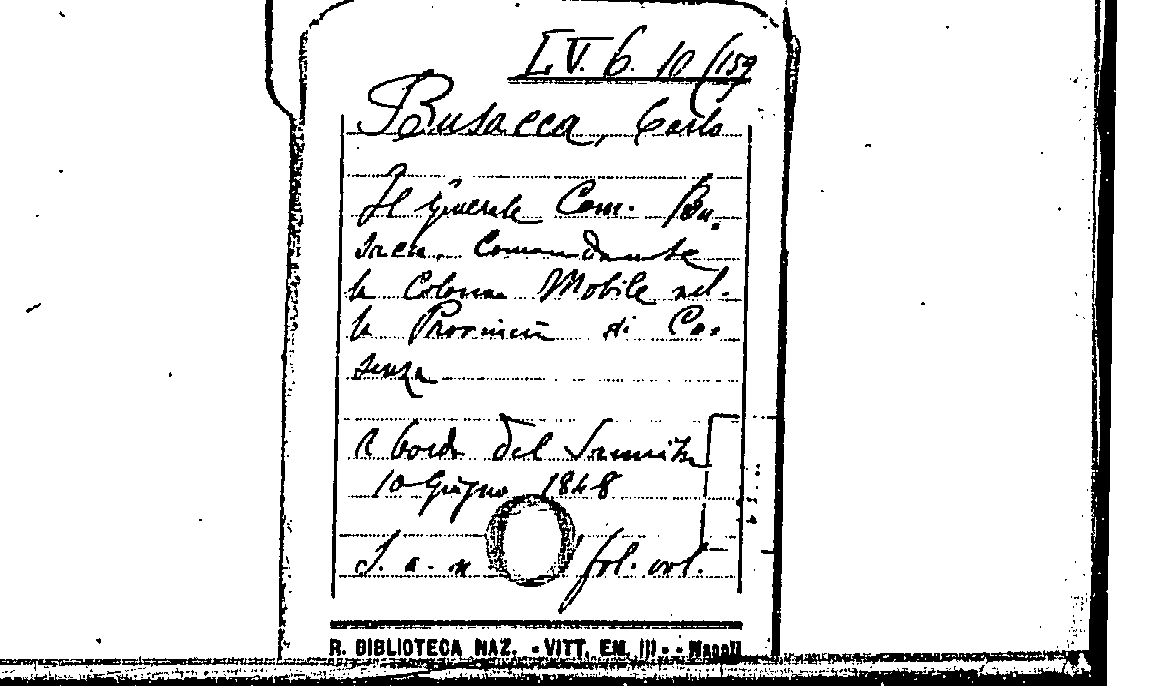 LV. 6. 10 (159
Busacca, Carlo
Il Generale Com. Bu-
sacca, Comandante
la Colonna Mobile nel-
la Provincia di Co-
senza
A bordo del Sannita
10 Giugno 1848
S. a. n fol. vol.
R. BIBLIOTECA NAZ. - VITT. EM. III - - Napoli